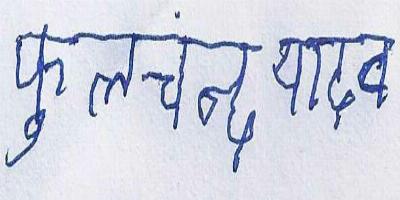 फुलचंन्द यादव